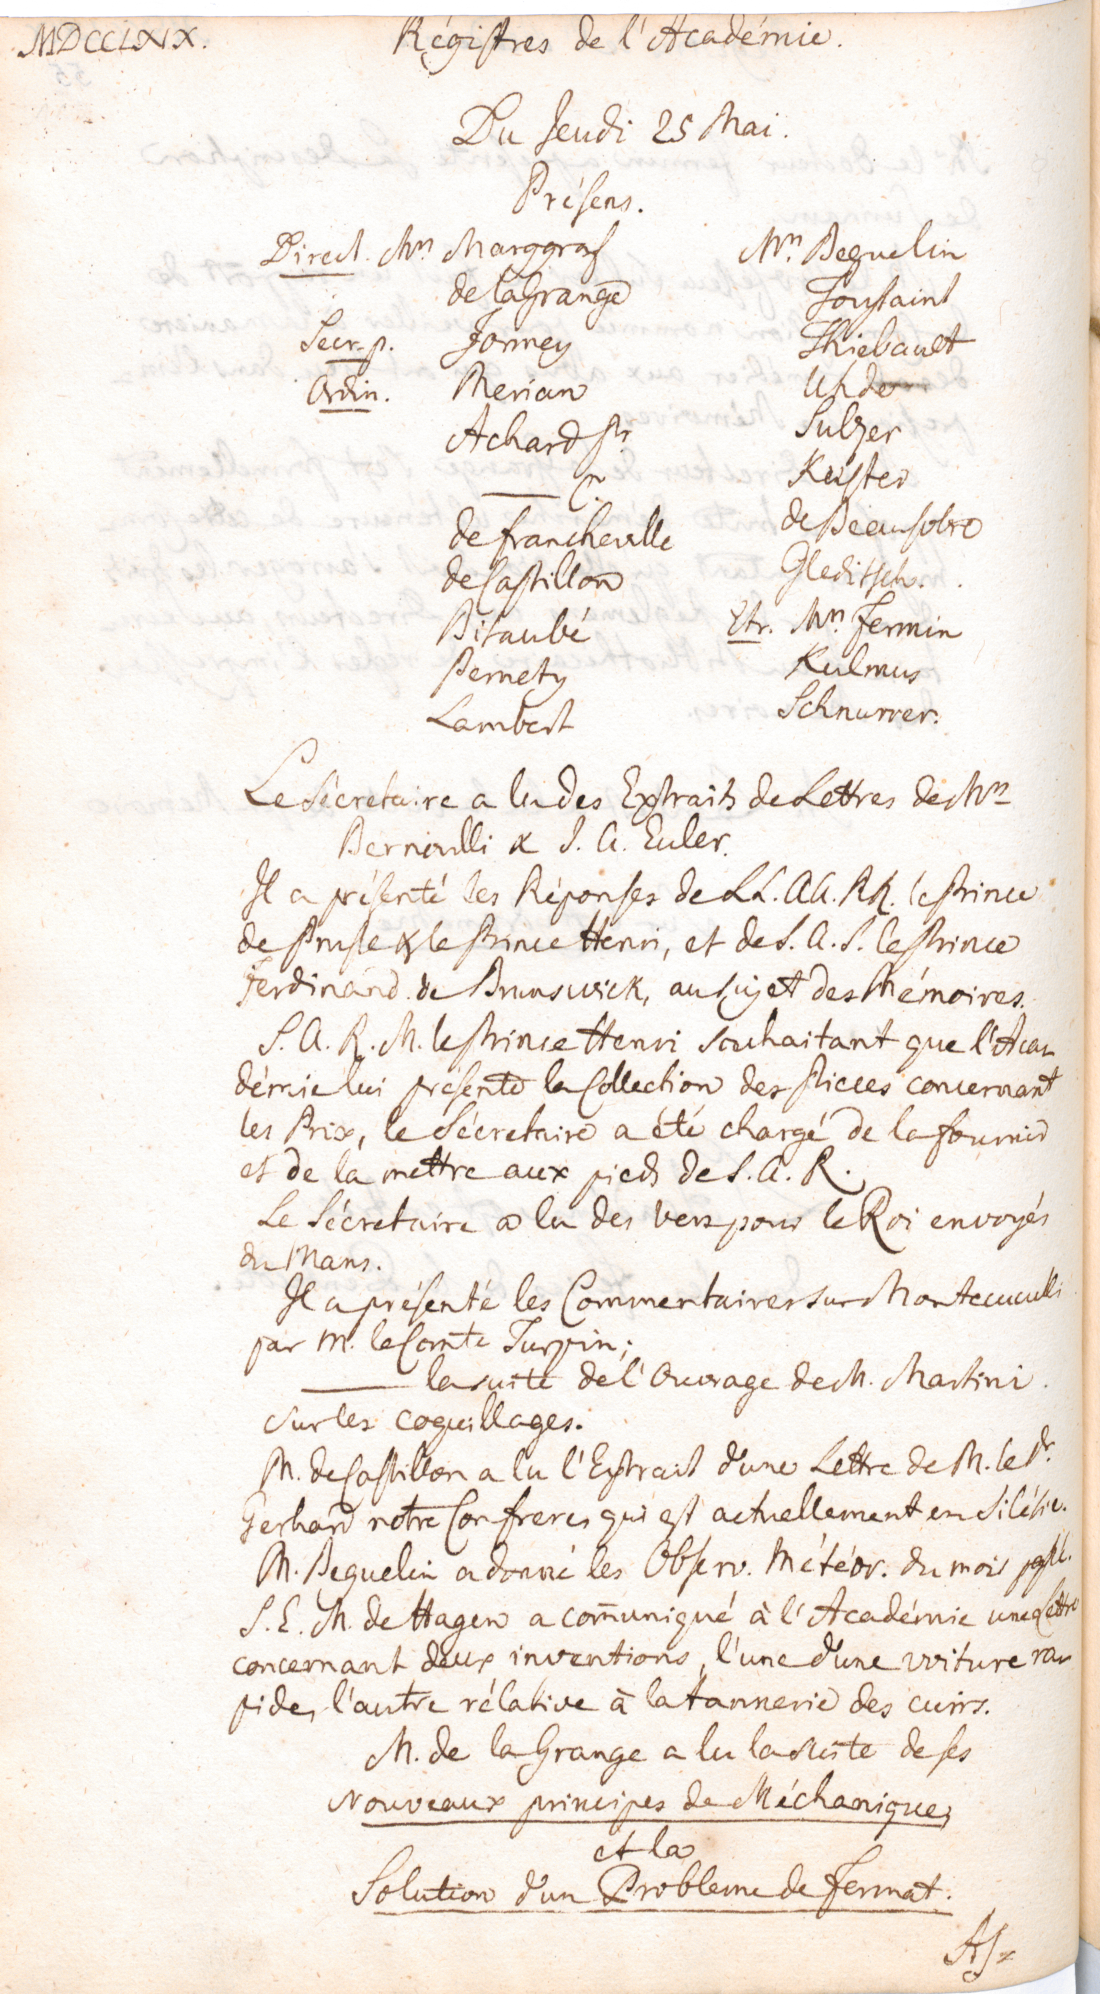 MDCCLXIX.
Régistres de l'Académie.
Du Jeudi 25 Mai.
Présens.
Direct. Mrs Marggraf
de la Grange
Secr. p. Formey
Ordin. Merian
Achard Sr
—— Cr
de Francheville
de Castillon
Bitaubé
Pernety
Lambert
Mrs Beguelin
Toussaint
Thiebault
Uhde
Sulzer
Küster
de Beausobre
Gleditsch.
Etr. Mrs Fermin
Kulmus
Schnurrer.
Le Sécretaire a lu des Extraits de Lettres de Mrs
Bernoulli & J. A. Euler.
Il a présenté les Réponses de LL. AA. RR. le Prince
de Prusse & le Prince Henri, et de S. A. S. le Prince
Ferdinand de Brunswick, au sujet des Mémoires.
S. A. R. M. le Prince Henri souhaitant que l'Aca-
démie lui présente la Collection des Pieces concernant
les Prix, le Sécretaire a été chargé de la fournir
et de la mettre aux pieds de S. A. R.
Le Sécretaire a lu des vers pour le Roi envoyés
du Mans.
Il a présenté les Commentaires sur Montecuculli
par M. le Comte Turpin;
—— la suite de l'Ouvrage de M. Martini
sur les coquillages.
M. de Castillon a lu l'Extrait d'une Lettre de M. le Dr
Gerhard notre Confrere, qui est actuellement en Silésie.
M. Beguelin a donné les Observ. Météor. du mois passé.
S. E. M. de Hagen a com̄uniqué à l'Académie une Lettre
concernant deux inventions, l'une d'une voiture ra-
pide, l'autre rélative à la tannerie des cuirs.
M. de la Grange a lu la suite de ses
Nouveaux principes de Méchanique,
et la
Solution d'un Probleme de Fermat.